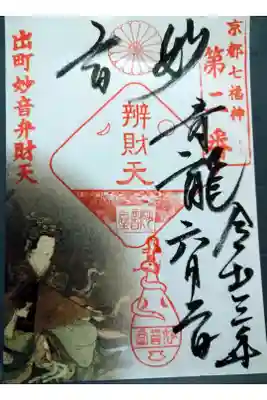 京都七福神
第一番
令和三年
妙音
六月
辨財天
妙音堂
出町妙音弁財天